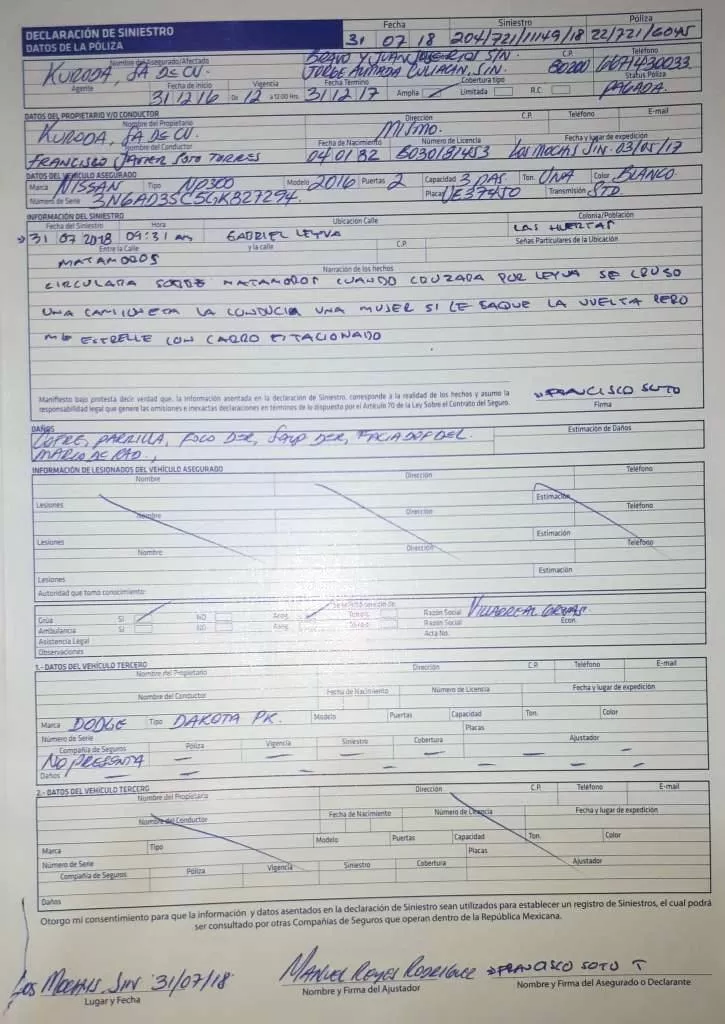 DECLARACIÓN DE SINIESTRO
DATOS DE LA PÓLIZA
Fecha Siniestro Póliza
31 07 18 204/721/11149/18 22/721/6045
Nombre del Asegurado/Afectado C.P. Teléfono
KURODA, SA DE CV. BRAVO Y JUAN JOSE RIOS S/N. 80200 6671430033
JORGE ALMADA CULIACÁN, SIN.
Agente Fecha de Inicio Vigencia Fecha Término Cobertura tipo Status Póliza
31 12 16 De 12 a 12:00 Hrs. 31/12/17 Amplia Limitada R.C. PAGADA
DATOS DEL PROPIETARIO Y/O CONDUCTOR
Nombre del Propietario Dirección C.P. Teléfono E-mail
KURODA, SA DE CV. MISMO.
Nombre del Conductor Fecha de Nacimiento Número de Licencia Fecha y lugar de expedición
FRANCISCO JAVIER SOTO TORRES 04 01 82 B030181453 LOS MOCHIS SIN. 03/05/17
DATOS DEL VEHÍCULO ASEGURADO
Marca NISSAN Tipo NP300 Modelo 2016 Puertas 2 Capacidad 3 PAS. Ton. UNA Color BLANCO
Número de Serie 3N6AD35C5GK827294. Placas UE37450 Transmisión STD.
INFORMACIÓN DEL SINIESTRO
Fecha del Siniestro Hora Ubicación Calle Colonia/Población
31 07 2018 09:31 am GABRIEL LEYVA LAS HUERTAS
Entre la Calle y la calle C.P. Señas Particulares de la Ubicación
MATAMOROS
Narración de los hechos
CIRCULABA SOBRE MATAMOROS CUANDO CRUZABA POR LEYVA SE CRUSO
UNA CAMIONETA LA CONDUCIA UNA MUJER SI LE SAQUE LA VUELTA PERO
ME ESTRELLE CON CARRO ESTACIONADO
Manifiesto bajo protesta decir verdad que, la información asentada en la declaración de Siniestro, corresponde a la realidad de los hechos y asumo la
responsabilidad legal que genere las omisiones e inexactas declaraciones en términos de lo dispuesto por el Artículo 70 de la Ley Sobre el Contrato del Seguro.
FRANCISCO SOTO
Firma
DAÑOS Estimación de Daños
COFRE, PARRILLA, FOCO DER, SALP DER,
INFORMACIÓN DE LESIONADOS DEL VEHÍCULO ASEGURADO
Nombre Dirección Teléfono
Lesiones Estimación
Nombre Dirección Teléfono
Lesiones Estimación
Nombre Dirección Teléfono
Lesiones Estimación
Autoridad que tomó conocimiento:
Grúa SI NO Aseg. Tercero Razón Social VILLARREAL GRUAS.
Ambulancia SI NO Aseg. Tercero Razón Social Econ.
Asistencia Legal Acta No.
Observaciones
1.- DATOS DEL VEHÍCULO TERCERO
Nombre del Propietario Dirección C.P. Teléfono E-mail
Nombre del Conductor Fecha de Nacimiento Número de Licencia Fecha y lugar de expedición
Marca DODGE Tipo DAKOTA PK. Modelo Puertas Capacidad Ton. Color
Número de Serie Placas
Compañía de Seguros Póliza Vigencia Siniestro Cobertura Ajustador
NO PRESENTA — — — — —
Daños — — — — — —
2.- DATOS DEL VEHÍCULO TERCERO
Nombre del Propietario Dirección C.P. Teléfono E-mail
Nombre del Conductor Fecha de Nacimiento Número de Licencia Fecha y lugar de expedición
Marca Tipo Modelo Puertas Capacidad Ton. Color
Número de Serie Placas
Compañía de Seguros Póliza Vigencia Siniestro Cobertura Ajustador
Daños
Otorgo mi consentimiento para que la información y datos asentados en la declaración de Siniestro sean utilizados para establecer un registro de Siniestros, el cual podrá
ser consultado por otras Compañías de Seguros que operan dentro de la República Mexicana.
LOS MOCHIS, SIN 31/07/18 MANUEL REYES RODRIGUEZ FRANCISCO SOTO T
Lugar y Fecha Nombre y Firma del Ajustador Nombre y Firma del Asegurado o Declarante